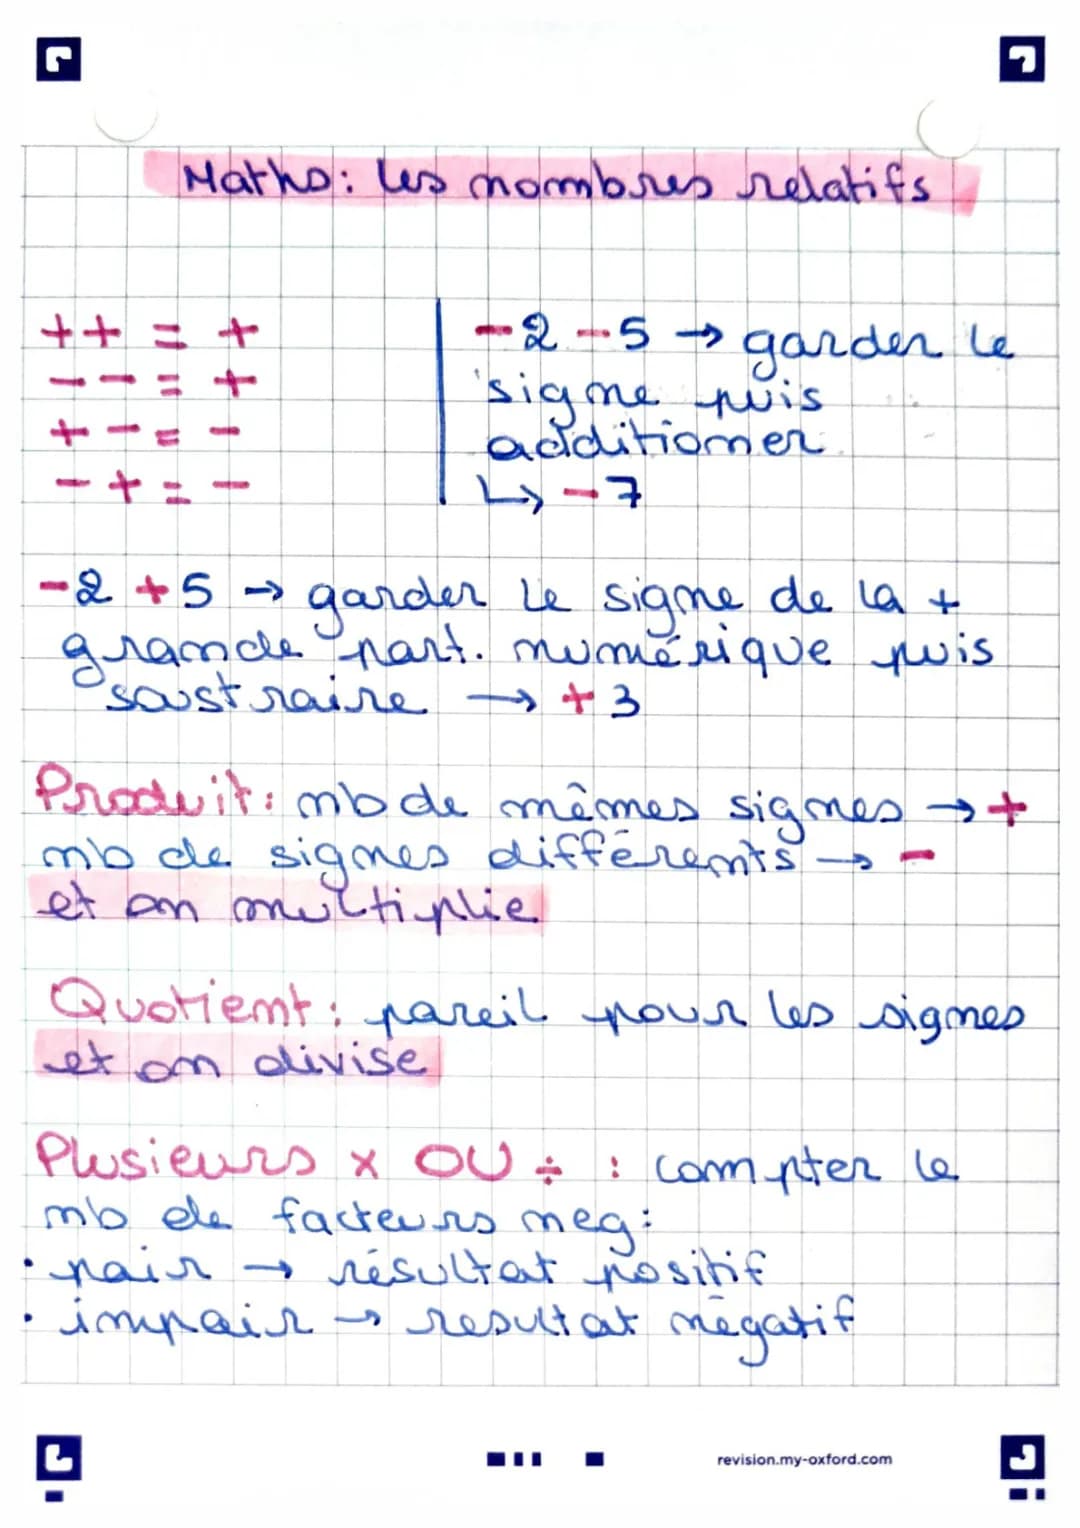 Maths: les nombres relatifs
++ = +
-- = +
+- = -
-+ = -
-2 -5 → garder le
signe puis
additionner
↳ -7
-2 +5 → garder le signe de la +
grande part. numérique puis
soustraire → +3
Produit: nb de mêmes signes → +
nb de signes différents → -
et on multiplie
Quotient: pareil pour les signes
et on divise
Plusieurs x OU ÷ : compter le
nb de facteurs neg:
• pair → résultat positif
• impair → resultat négatif
revision.my-oxford.com